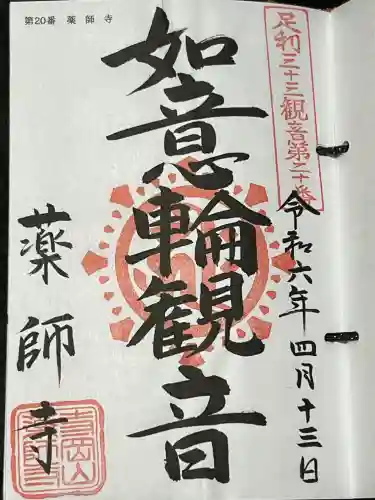 第20番 薬師寺
足利三十三観音第二十番
令和六年四月十三日
如意輪観音
薬師寺